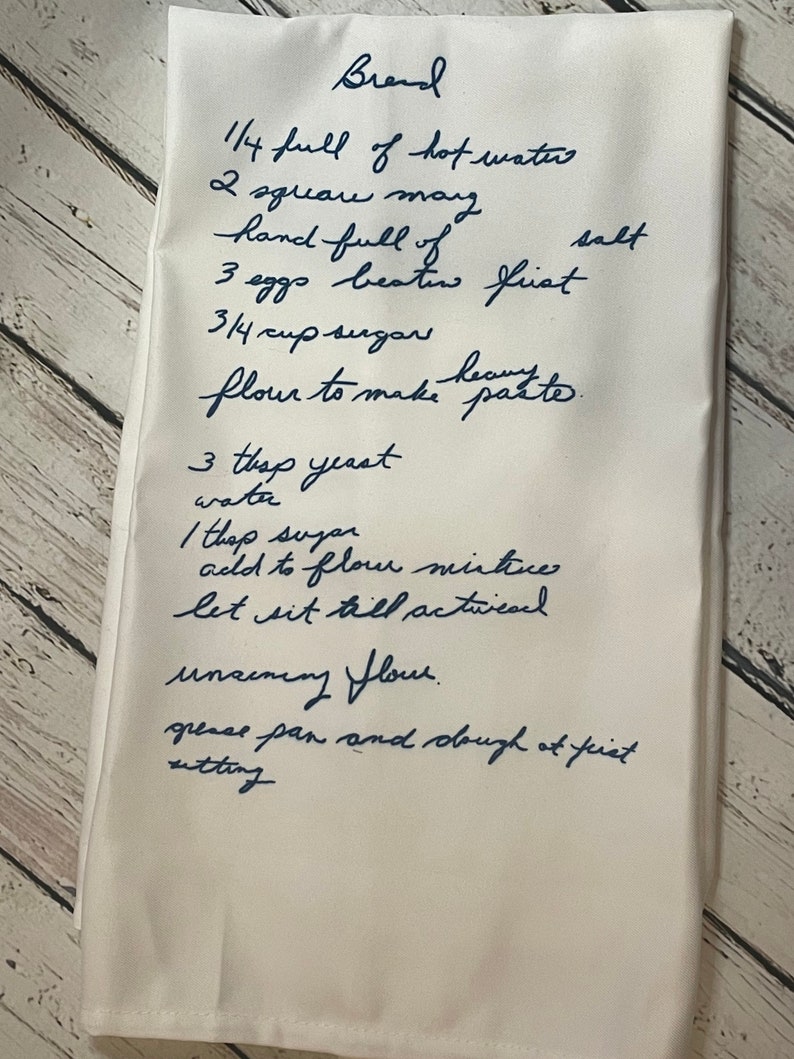 Bread
1/4 full of hot water
2 square marg
hand full of salt
3 eggs beaten first
3/4 cup sugar
flour to make heavy paste.
3 tbsp yeast
water
1 tbsp sugar
add to flour mixture
let sit till activead
flour.
grease pan and dough at first
setting